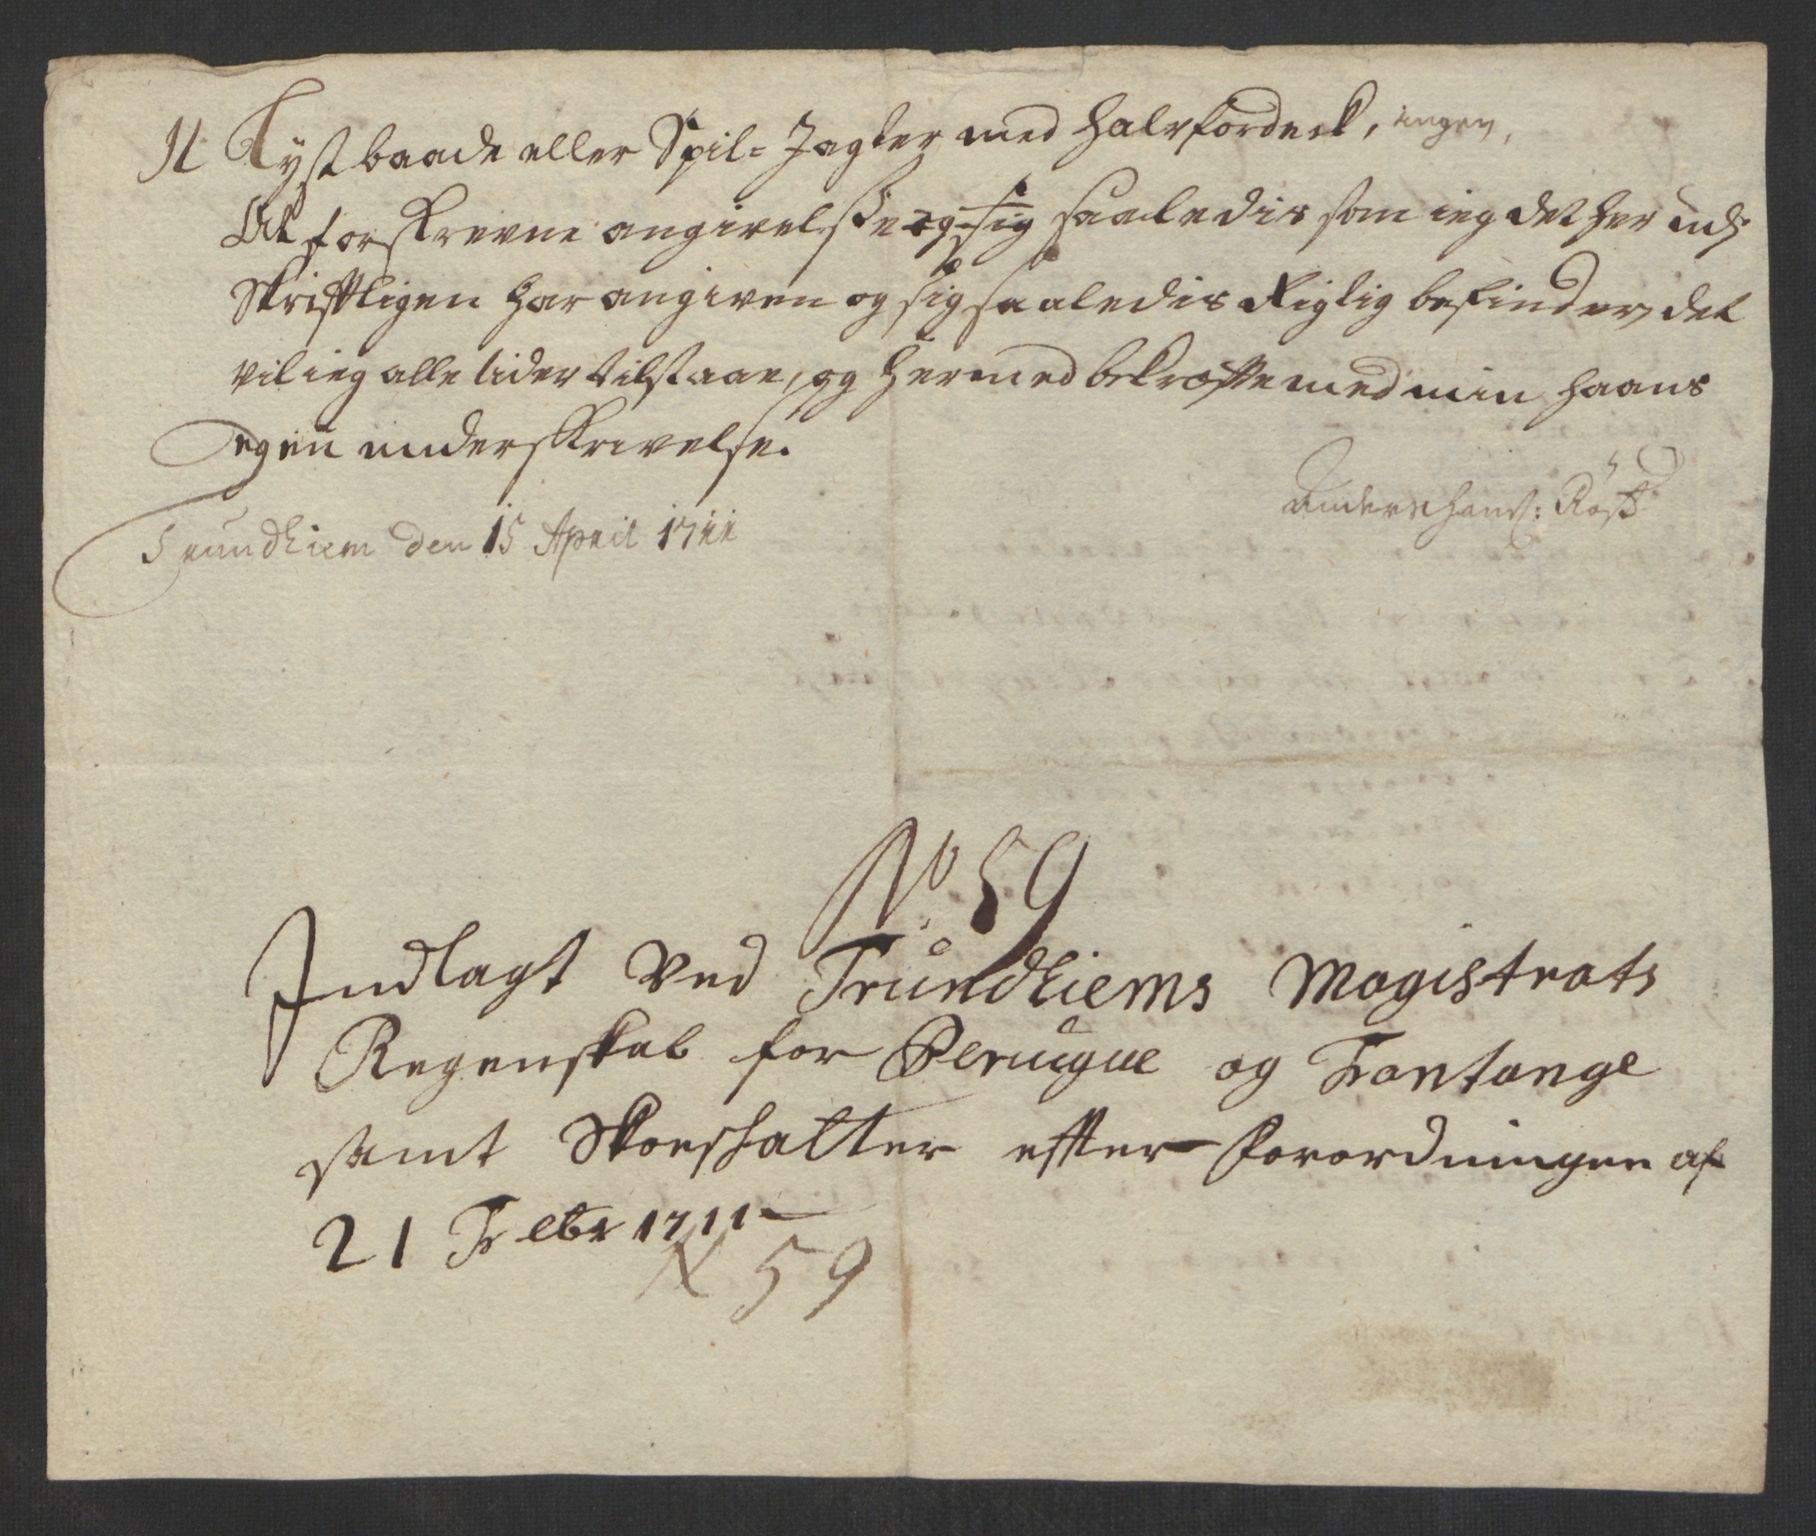 11 Lystbaade eller Spil= Jagter med halvfordeck, ingen,
At forskrevne angivelse og sig saaledis som ieg det her udj
Skriftligen har angiven og sig saaledis Rigtig befinder, det
vil ieg alle tider tilstaae, og hermed bekræfte med min haans
egen underskrivelse.
Anders hans: Röst
Trundhiem den 15 April 1711
No 59
Indlagt ved Trundhiems Magistrats
Regenskab for Peruque og Fontange
samt Skoeshatter efter Forordningen af
21 Febr 1711
N 59